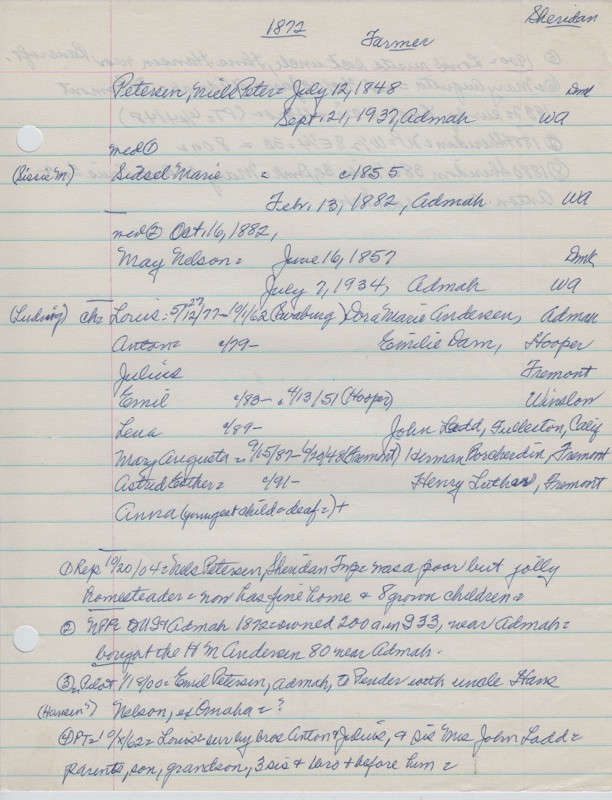 Sheridan
1872
Farmer
Petersen, Niels Peter = July 12, 1848 Dmk
Sept. 21, 1937, Admah WA
med ①
(Sissie M.) Sidsel Marie = c1855
Feb. 13, 1882, Admah WA
med ② Oct. 16, 1882,
May Nelson = June 16, 1857 Dmk
July 7, 1934, Admah WA
(Ludwig) ch = Louis: Dora Marie Andersen, Admah
Anton = c/79- Emilie Dam, Hooper
Julius Fremont
Emil c/83- c4/13/51 (Hooper) Winslow
Lena c/89- John Ladd, Fullerton, Calif
Mary Augusta = 9/15/87- (Fremont) Herman Borcherdin, Fremont
Astrid Esther = c/91- Henry Luthan, Fremont
Anna (youngest child = deaf =) +
① Rep 10/20/04 = Nels Petersen, Sheridan Twp = was a poor but jolly
homesteader = now has fine home & 8 grown children =
② NPP = to US & Admah 1872 = owned 200 a. in S33, near Admah =
bought the H M Andersen 80 near Admah.
③ Pilot 1/18/00 = Emil Petersen, Admah, to Pender with uncle Hans
(Hansen?) Nelson, ex Omaha = ?
④ PT = /62 = Louis = surv by bros Anton & Julius, & sis Mrs John Ladd =
parents, son, grandson, 3 sis & bro + before him =